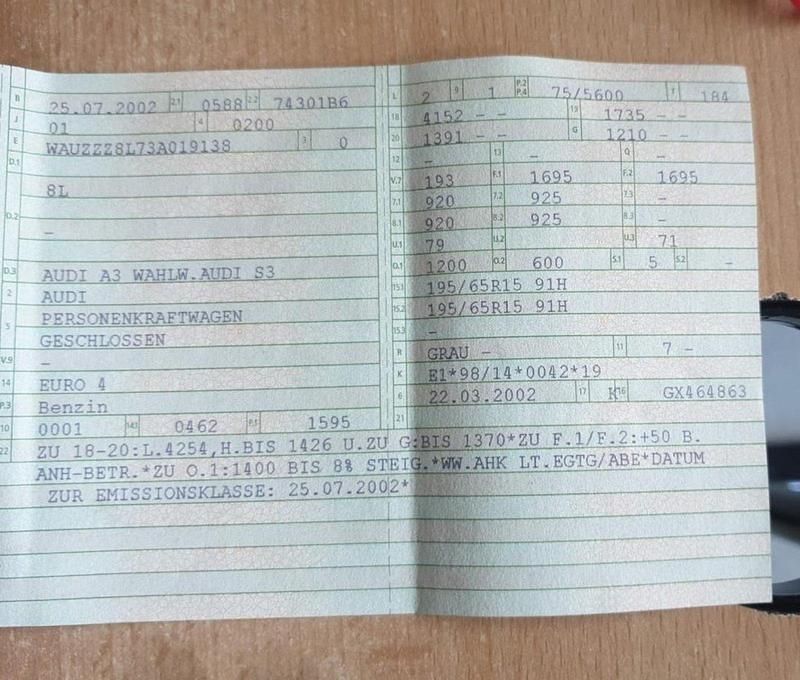 B 25.07.2002 2.1 0588 2.2 74301B6
J 01 4 0200
E WAUZZZ8L73A019138 3 0
D.1
8L
D.2 –
D.3 AUDI A3 WAHLW.AUDI S3
2 AUDI
5 PERSONENKRAFTWAGEN
GESCHLOSSEN
V.9 –
14 EURO 4
P.3 Benzin
10 0001 14.1 0462 P.1 1595
L 2 9 1 P.2 P.4 75/5600 T 184
18 4152 – – 19 1735 – –
20 1391 – – G 1210 – –
12 – 13 – Q –
V.7 193 F.1 1695 F.2 1695
7.1 920 7.2 925 7.3 –
8.1 920 8.2 925 8.3 –
U.1 79 U.2 U.3 71
O.1 1200 O.2 600 S.1 5 S.2 –
15.1 195/65R15 91H
15.2 195/65R15 91H
15.3 –
R GRAU – 11 7 –
K E1*98/14*0042*19
6 22.03.2002 17 K 16 GX464863
21
22 ZU 18-20:L.4254,H.BIS 1426 U.ZU G:BIS 1370*ZU F.1/F.2:+50 B.
ANH-BETR.*ZU O.1:1400 BIS 8% STEIG.*WW.AHK LT.EGTG/ABE*DATUM
ZUR EMISSIONSKLASSE: 25.07.2002*